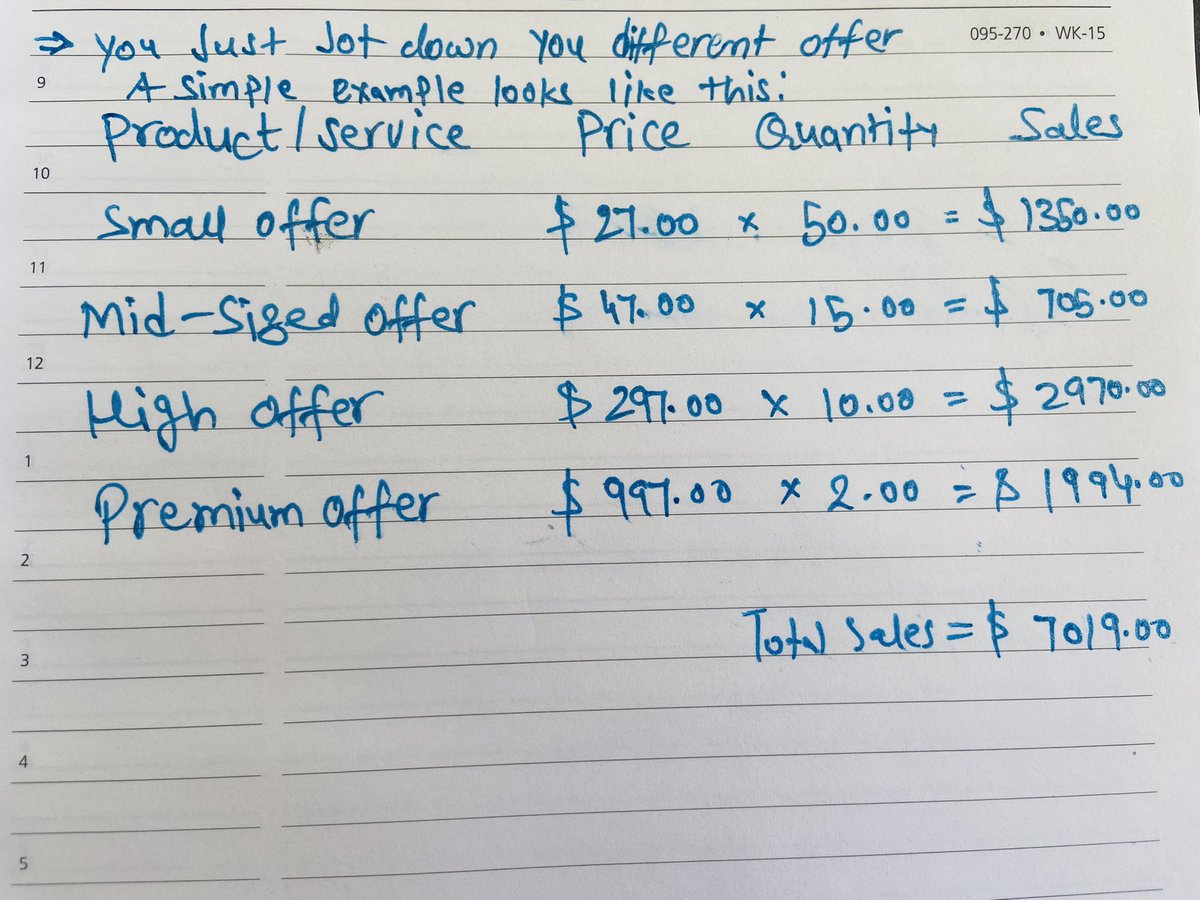 095-270 • WK-15
⇒ you Just Jot down you different offer
9
A Simple example looks like this:
Product/service Price Quantity Sales
10
Small offer $ 27.00 x 50.00 = $ 1350.00
11
Mid-Sized offer $ 47.00 x 15.00 = $ 705.00
12
High offer $ 297.00 x 10.00 = $ 2970.00
1
Premium offer $ 997.00 x 2.00 = $ 1994.00
2
Total Sales = $ 7019.00
3
4
5